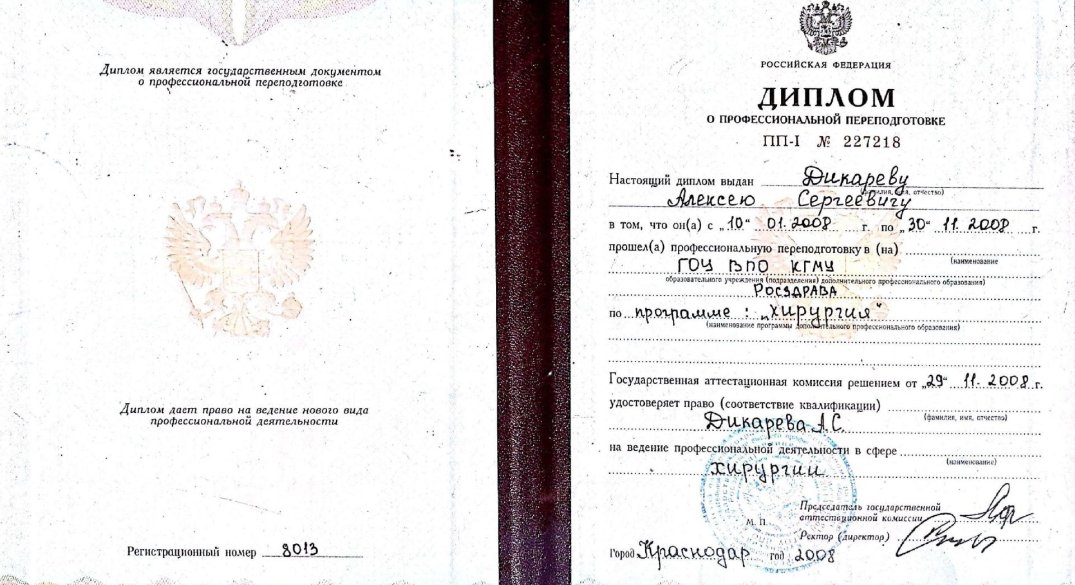 Диплом является государственным документом
о профессиональной переподготовке
Диплом дает право на ведение нового вида
профессиональной деятельности
Регистрационный номер 8013
РОССИЙСКАЯ ФЕДЕРАЦИЯ
ДИПЛОМ
О ПРОФЕССИОНАЛЬНОЙ ПЕРЕПОДГОТОВКЕ
ПП-I № 227218
Настоящий диплом выдан Дикареву
(фамилия, имя, отчество)
Алексею Сергеевичу
в том, что он(а) с „10“ 01.2008 г. по „30“ 11.2008 г.
прошел(а) профессиональную переподготовку в (на)
(наименование
ГОУ ВПО КГМУ
образовательного учреждения (подразделения) дополнительного профессионального образования)
Росздрава
по программе : „хирургия“
(наименование программы дополнительного профессионального образования)
Государственная аттестационная комиссия решением от „29“ 11.2008 г.
удостоверяет право (соответствие квалификации)
(фамилия, имя, отчество)
Дикарева А.С.
на ведение профессиональной деятельности в сфере
(наименование)
хирургии
Председатель государственной
аттестационной комиссии
М. П.
Ректор (директор)
Город Краснодар год 2008